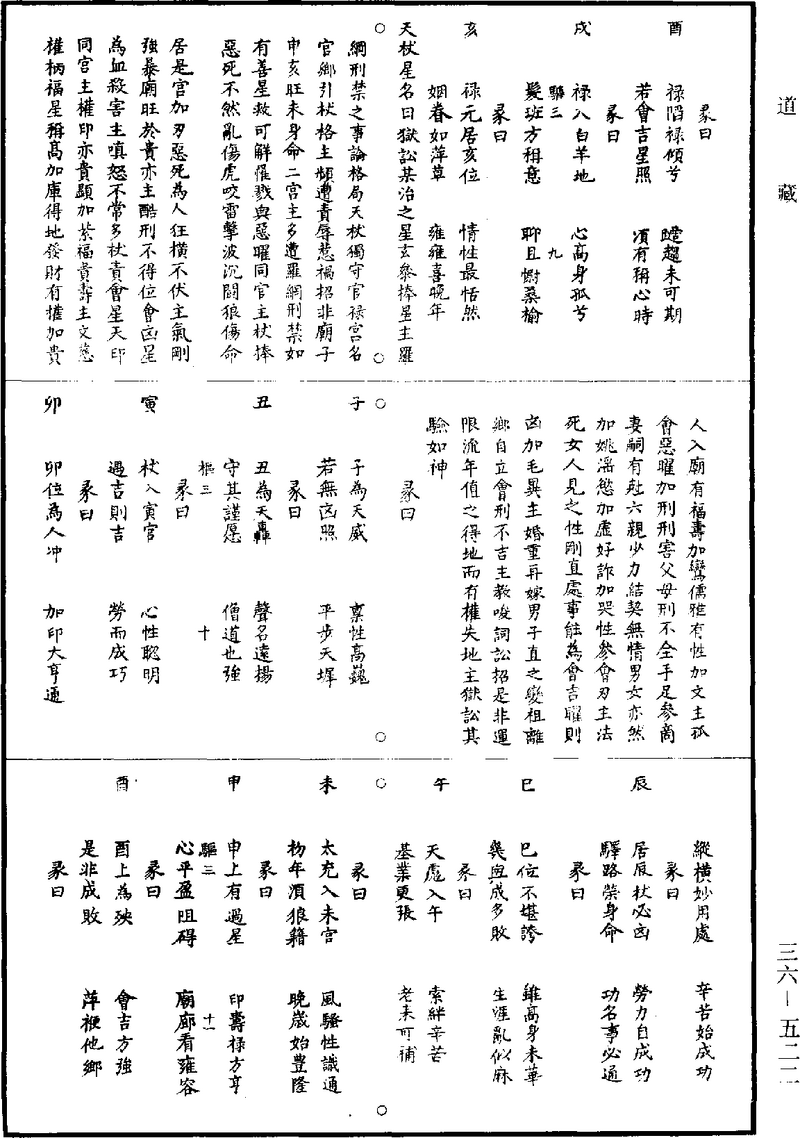 道藏
彖曰
酉 祿陷祿傾兮 蹉趨未可期
若會吉星照 須有稱心時
彖曰
戌 祿入白羊地 心高身孤兮
驅三 九
髮班方稱意 聊且慰桑榆
彖曰
亥 祿元居亥位 情性最恬然
姻眷如萍草 雍雍喜晚年
天杖星名曰獄訟某治之星玄參捧星主羅
網刑禁之事論格局天杖獨守官祿宮名
官鄉引杖格主頻遭責辱惹禍招非廟子
申亥旺未身命二宮主多遭羅網刑禁如
有善星救可解罹戮與惡曜同官主杖捧
惡死不然亂傷虎咬雷擊波沉閗狼傷命
居是宮加刃惡死為人狂橫不伏主氣剛
強暴廟旺於貴亦主酷刑不得位會凶星
為血殺害主嗔怒不常多杖責會星天印
同宮主權印亦貴顯加紫福貴壽主文慈
權柄福星稱高加庫得地發財有權加貴
人入廟有福壽加鸞儒雅有性加文主孤
會惡曜加刑刑害父母刑不全手足參商
妻嗣有尅六親少力結契無情男女亦然
加姚滛慾加虛好詐加哭性參會刃主法
死女人見之性剛直處事能為會吉曜則
凶加毛異主婚重再嫁男子直之變祖離
鄉自立會刑不吉主教唆詞訟招是非運
限流年值之得地而有權失地主獄訟其
驗如神
彖曰
子 子為天威 禀性高巍
若無凶照 平步天墀
彖曰
丑 丑為天轟 聲名遠揚
守其謹愿 僧道也強
驅三 十
彖曰
寅 杖入寅宮 心性聪明
遇吉則吉 勞而成巧
彖曰
卯 卯位為人冲 加印大亨通
縱橫妙用處 辛苦始成功
彖曰
辰 居辰杖必凶 勞力自成功
驛路榮身命 功名事必通
彖曰
巳 巳位不堪誇 雖高身未華
幾與成多敗 生涯亂似麻
彖曰
午 天處入午 索絆辛苦
基業更張 老来可補
彖曰
未 太充入未宮 風騷性識通
初年須狼籍 晚歲始豊隆
彖曰
申 申上有過星 印壽祿方亨
驅三 十一
心平盈阻碍 廟廊看雍容
彖曰
酉 酉上為殃 會吉方強
是非成敗 萍梗他鄉
彖曰
三六—五二二